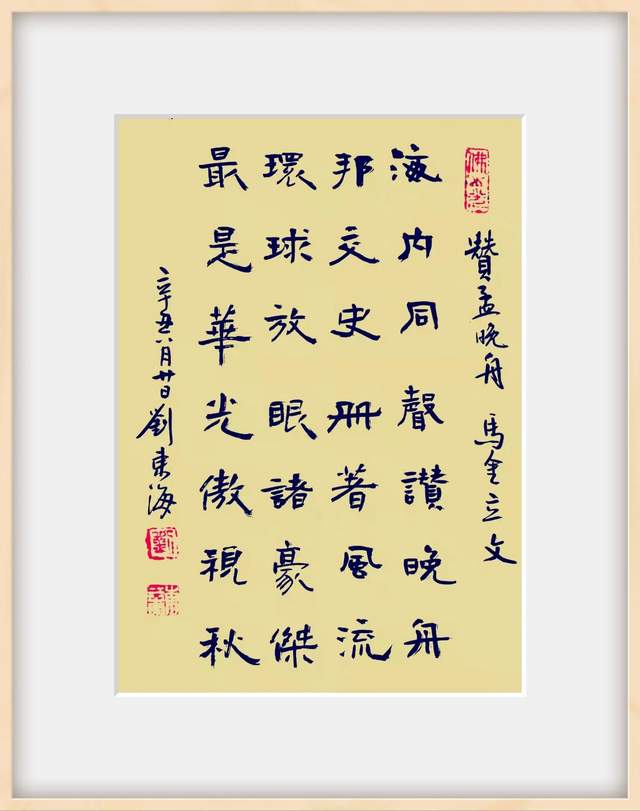 贊孟晚舟 馬金立文
海内同聲讃晚舟
邦交史册著風流
環球放眼諸豪傑
最是華光傲視秋
辛丑八月廿日劉東海